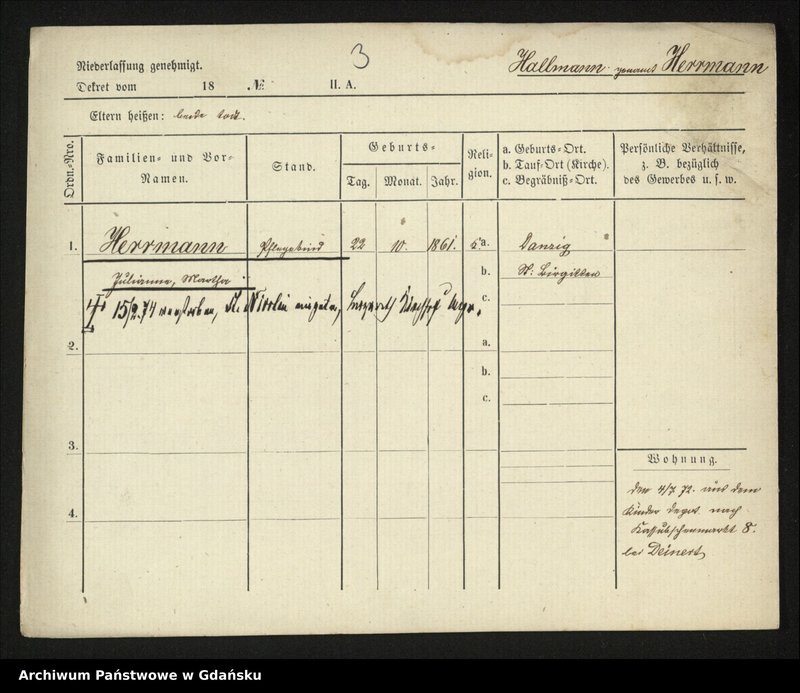 3
Hallmann genannt Herrmann
Niederlassung genehmigt.
Dekret vom 18 № II. A.
Eltern heißen: beide tot.
Ordn.-Nro.
Familien- und Vor-
Namen.
Stand.
Geburts-
Tag. Monat. Jahr.
Reli-
gion.
a. Geburts-Ort.
b. Tauf-Ort (Kirche).
c. Begräbniß-Ort.
Persönliche Verhältnisse,
z. B. bezüglich
des Gewerbes u. s. w.
1. Herrmann Pflegekind 22 10. 1861. a. Danzig
Julianne, Martha b. St: Birgitten
15/2.74 verstorben, St. Nicolai Kirchhof c.
2. a.
b.
c.
3.
4.
Wohnung.
den 4/7 72. aus dem
Kinder Depot. nach
Kassubschenmarkt 8.
bei Deinert
Archiwum Państwowe w Gdańsku